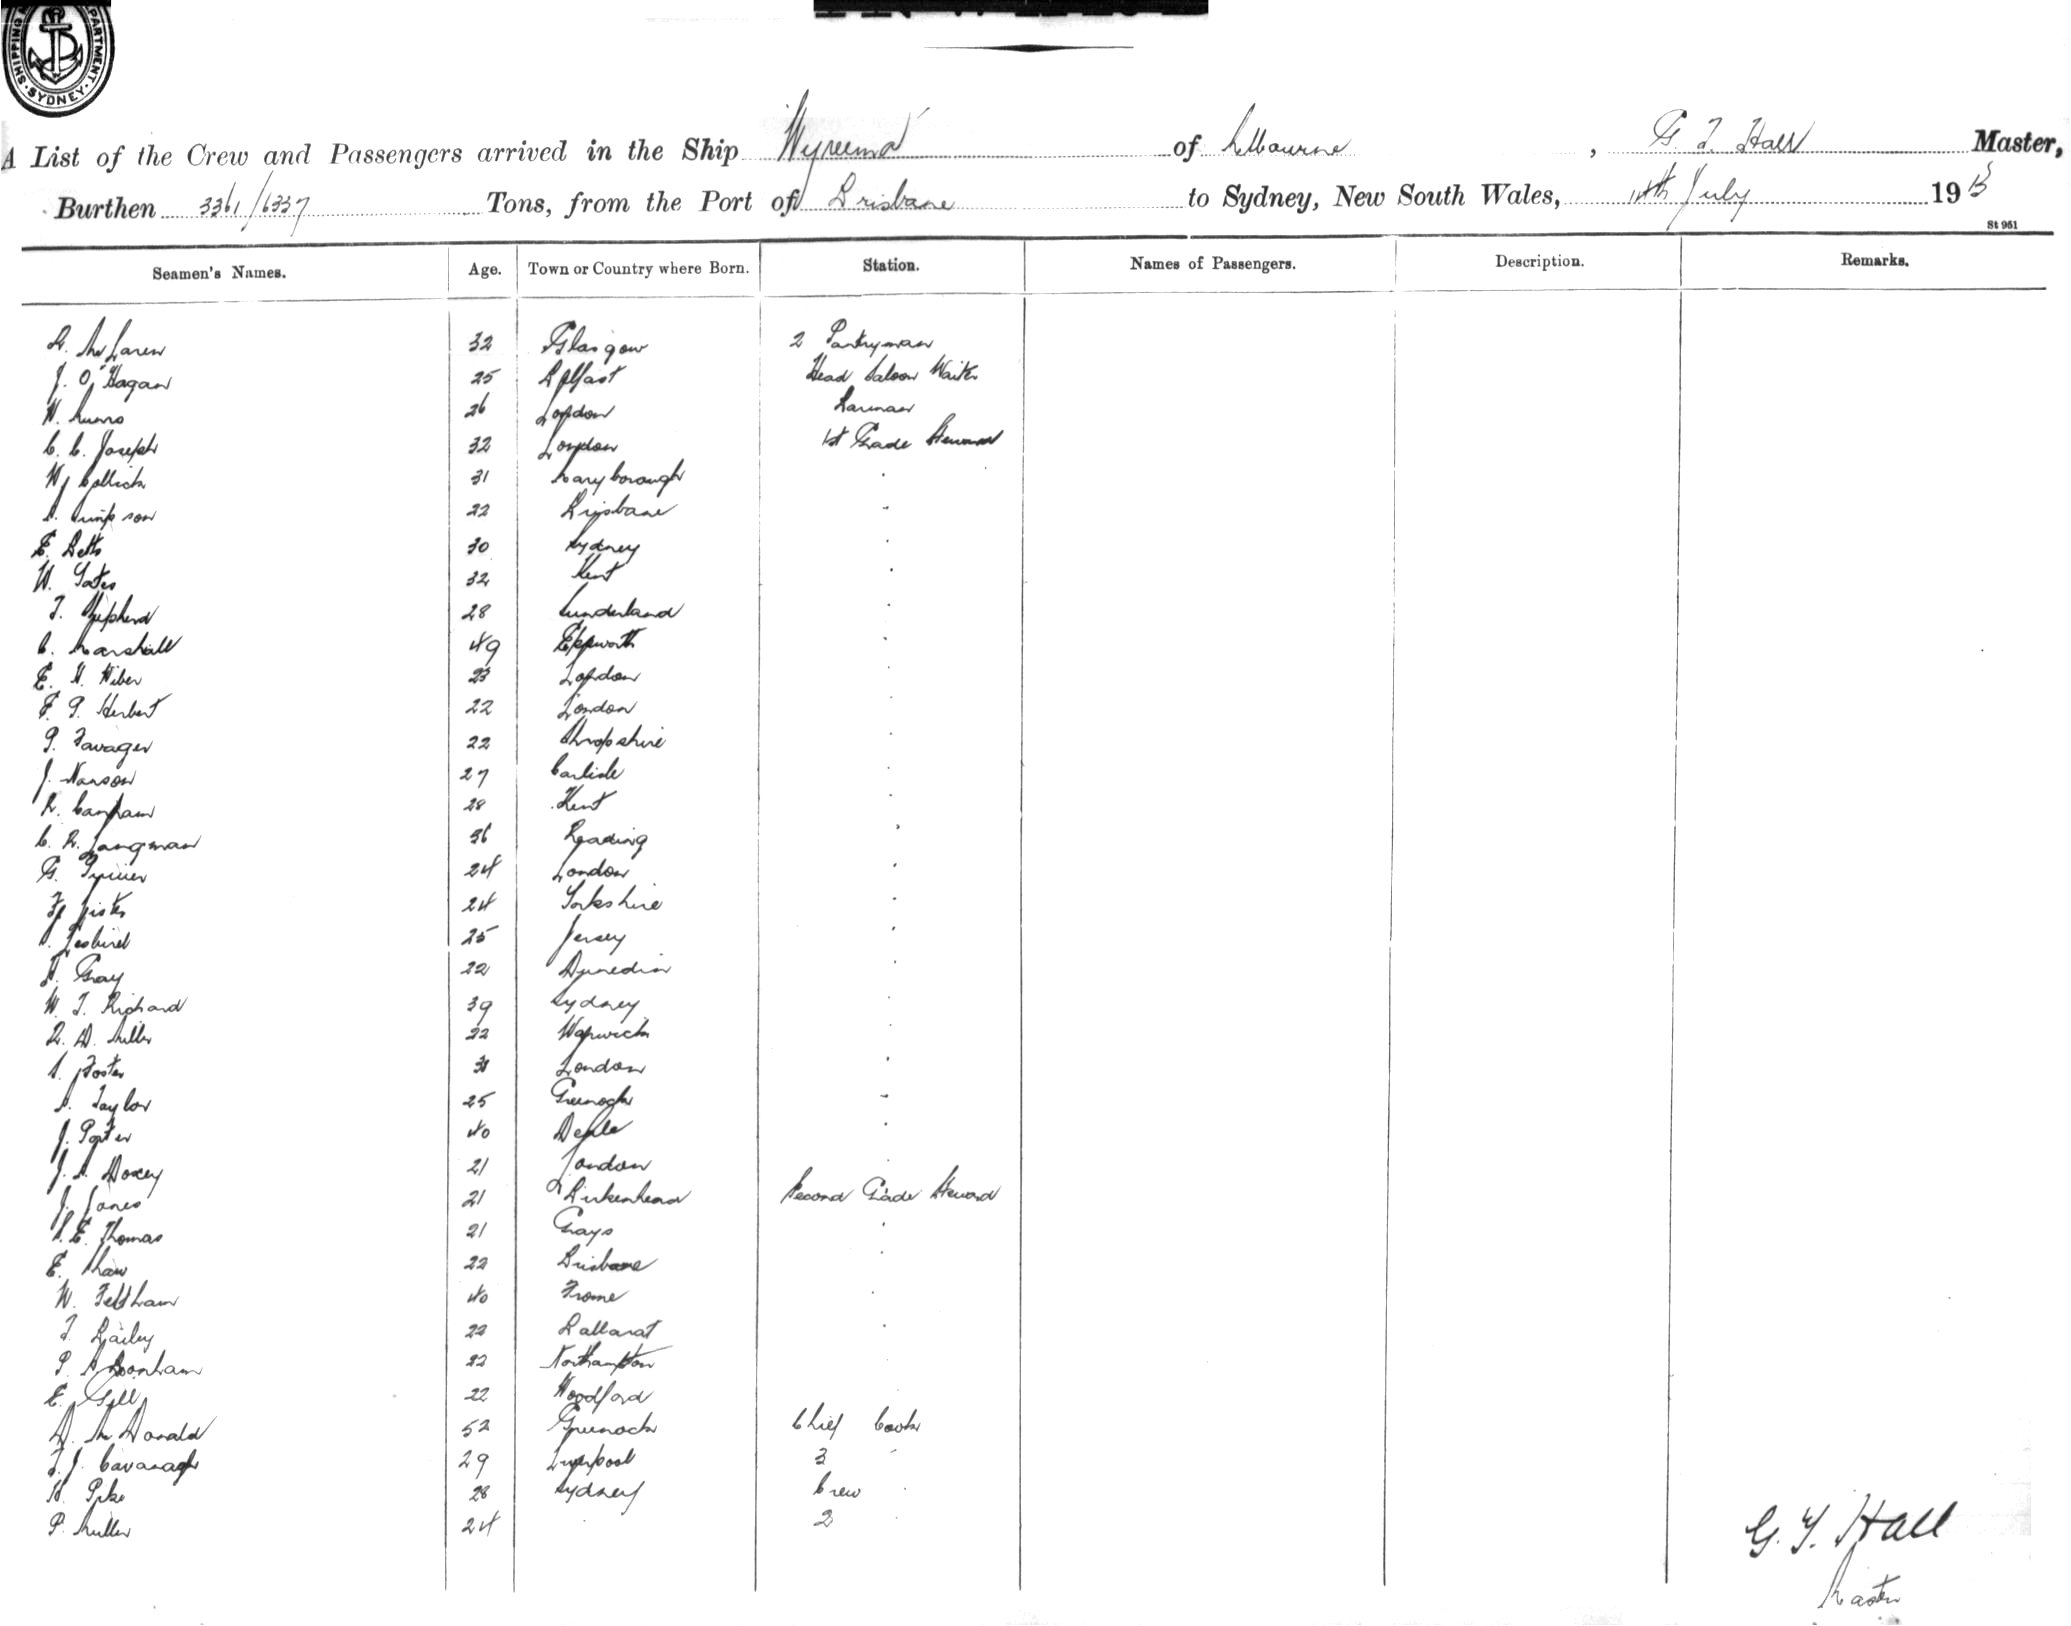 SHIPPING DEPARTMENT SYDNEY
A List of the Crew and Passengers arrived in the Ship Wyreema of Melbourne, G. T. Hall Master,
Burthen 3361/6337 Tons, from the Port of Brisbane to Sydney, New South Wales, 14th July 19
St 961
Seamen's Names. Age. Town or Country where Born. Station. Names of Passengers. Description. Remarks.
R. McLaren 32 Glasgow 2 Pantryman
J. O'Hagan 25 Belfast Head Saloon Waiter
W. Munro 26 London Barman
C. C. Joseph 32 London 1st Grade Steward
W. Collick 31 Maryborough
S. Simpson 22 Brisbane
E. Betts 30 Sydney
W. Yates 32 Kent
T. Shepherd 28 Sunderland
C. Marshall 49 Epworth
E. H. Wiber 23 London
E. P. Herbert 22 London
P. Favager 22 Shropshire
J. Nanson 27 Carlisle
R. Canham 28 Kent
C. R. Langman 36 Reading
G. 24 London
F. Lister 24 Yorkshire
25 Jersey
A. Gray 22 Dunedin
W. T. Richard 39 Sydney
R. D. Miller 22 Warwick
S. Foster 31 London
S. Taylor 25 Greenock
J. Porter 40 Deal
J. S. Doxey 21 London
J. Jones 21 Birkenhead Second Grade Steward
S. E. Thomas 21 Grays
E. Shaw 22 Brisbane
W. Feltham 40 Frome
T. Bailey 22 Ballarat
P. A. Boonham 22 Northampton
E. Gill 22 Woodford
D. McDonald 52 Greenock Chief Cook
T. J. Cavanagh 29 Liverpool 3 "
H. Pike 28 Sydney Crew "
P. Miller 24 " 2 "
G. T. Hall
Master